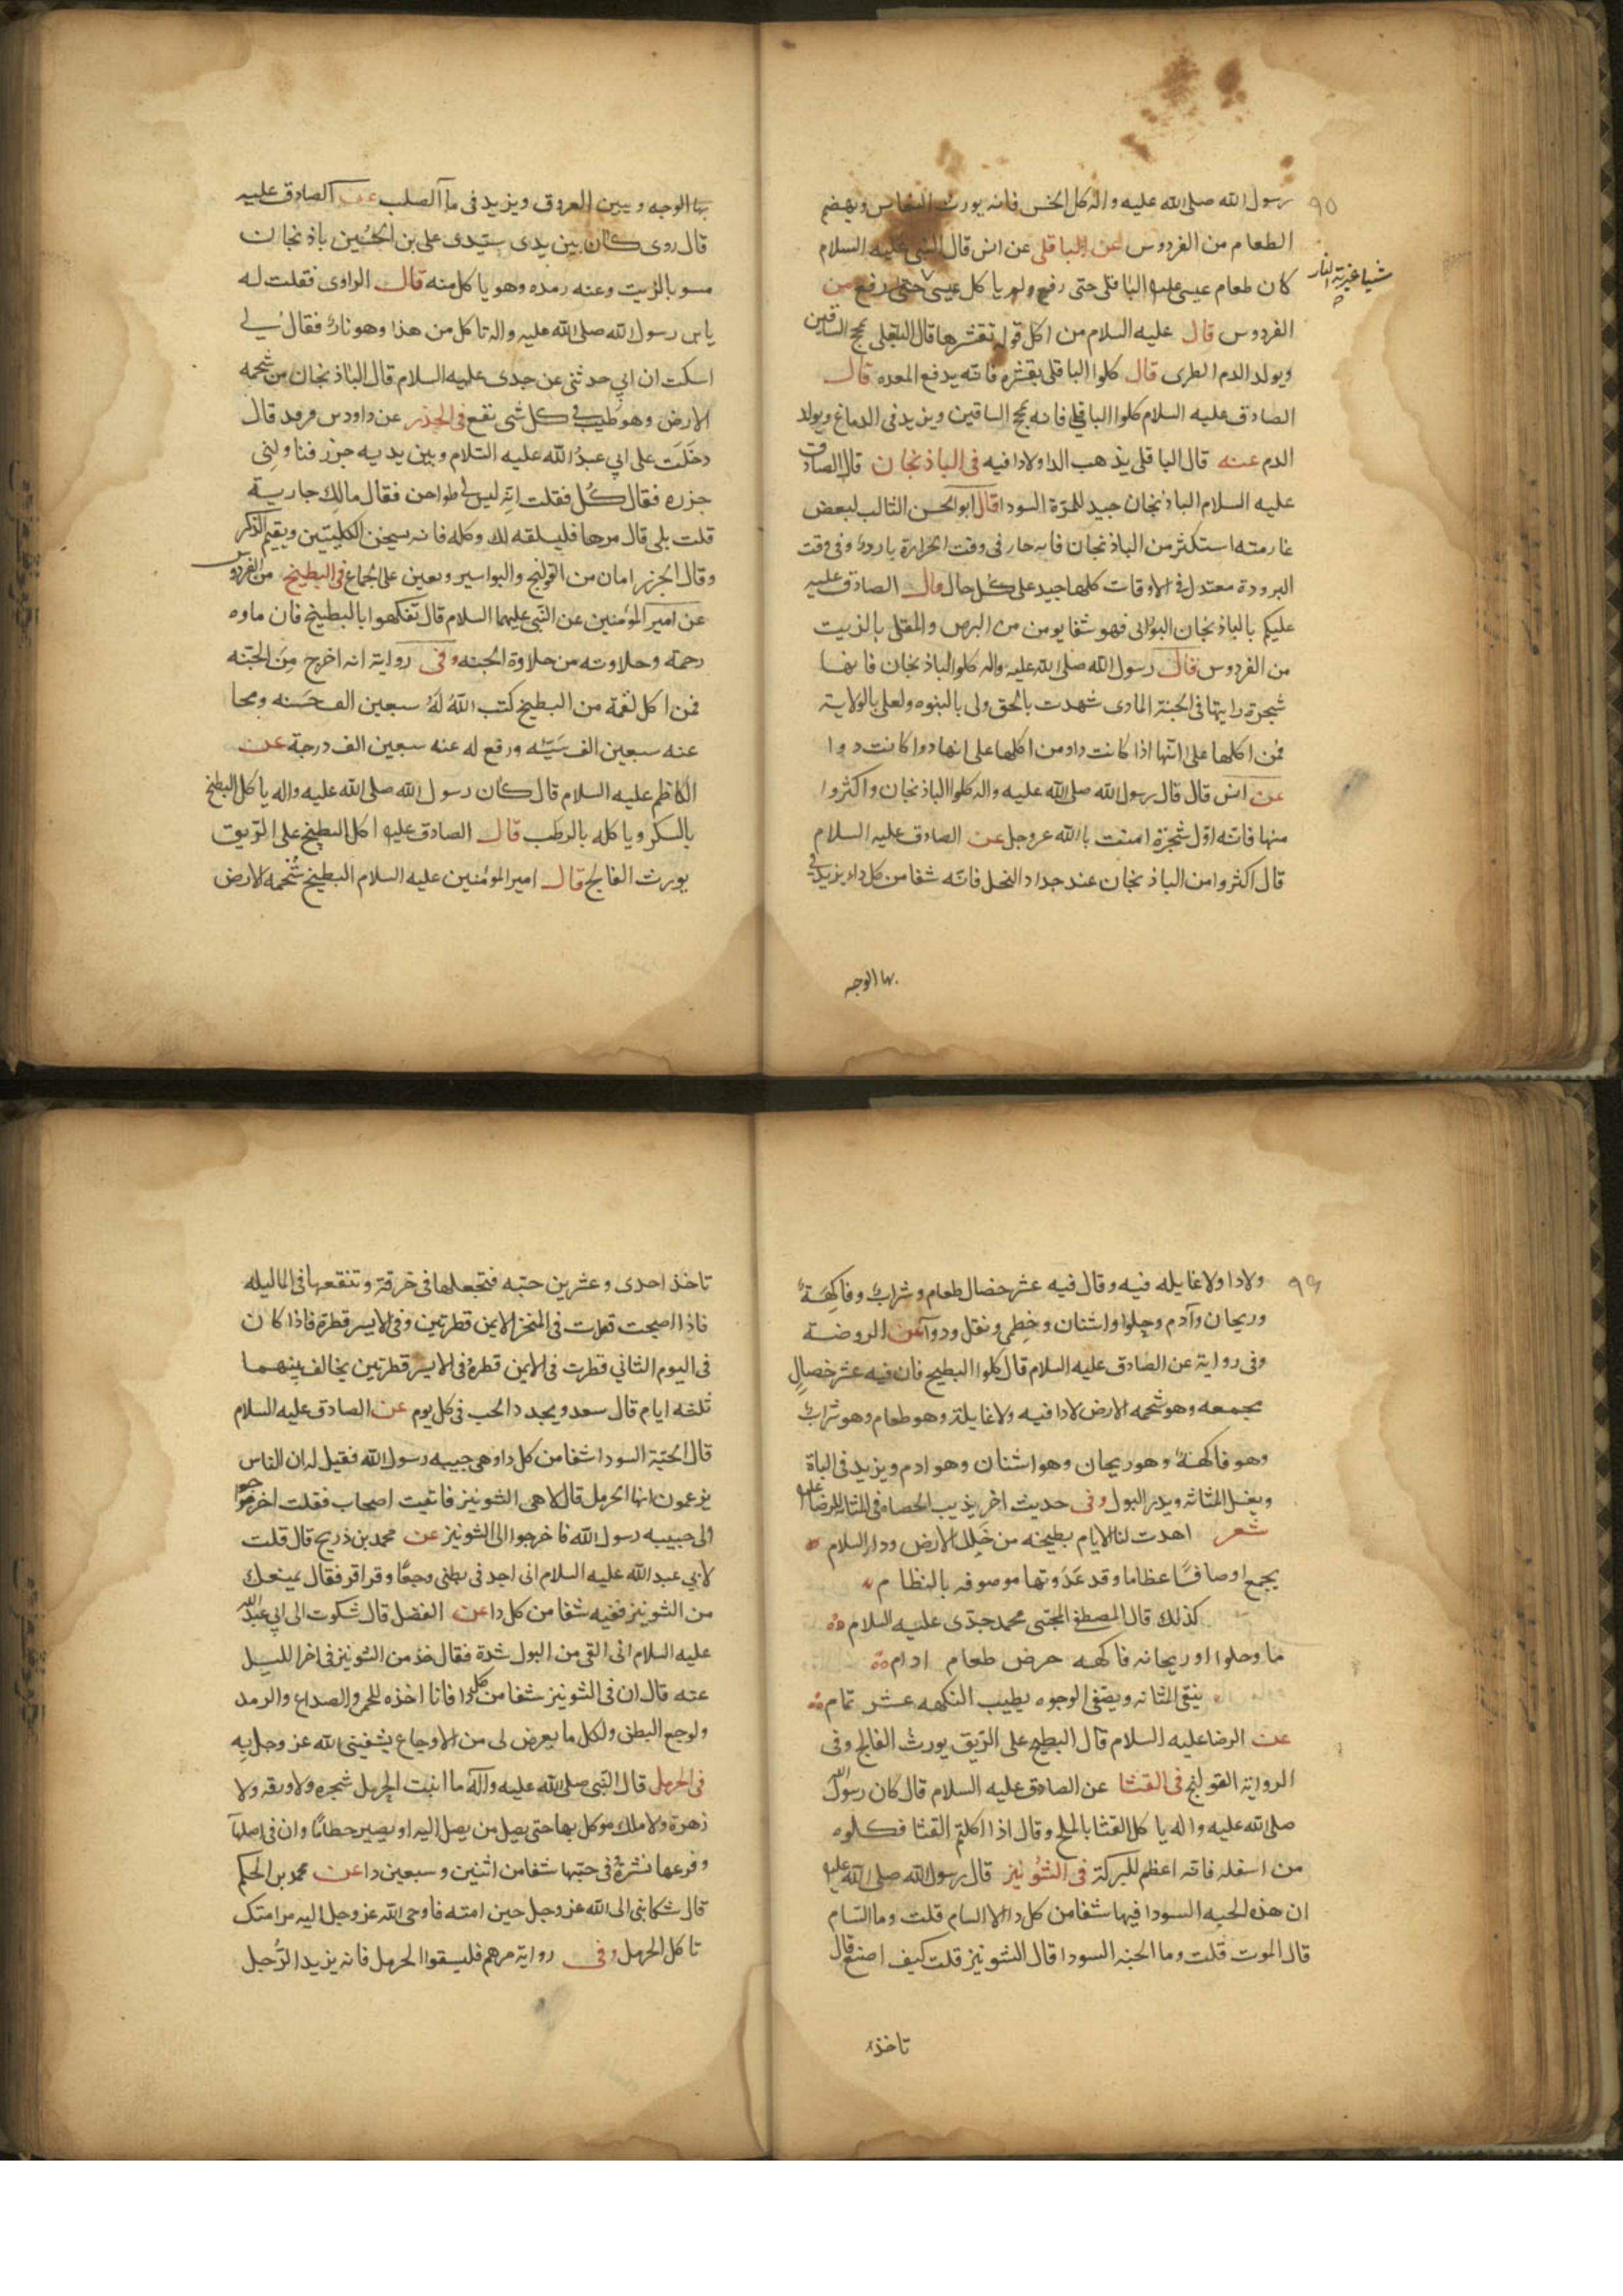 ٩٥
رسول الله صلى الله عليه واله كل الخس فانه يورث النعاس ويهضم
الطعام من الفردوس عن الباقلى عن انس قال النبى عليه السلام
كان طعام عيسى عليه الباقلى حتى رفع ولم ياكل عيسى حتى رفع من
شيا غيرته النار
الفردوس قال عليه السلام من اكل فوله بقشرها قال الباقلى يمخ الساقين
ويولد الدم الطرى قال كلوا الباقلى بقشره فانه يدفع المعده قال
الصادق عليه السلام كلوا الباقلى فانه يمخ الساقين ويزيد فى الدماغ ويولد
الدم عنه قال الباقلى يذهب الدا ولادا فيه فى الباذنجان قال الصادق
عليه السلام الباذنجان جيد للمرة السودا قال ابو الحسن الثالث لبعض
قهارمته استكثر من الباذنجان فانه حار فى وقت الحرارة بارد وفى وقت
البرودة معتدل فى الاوقات كلها جيد على كل حال وقال الصادق عليه
عليكم بالباذنجان البورانى فهو شفا يومن من البرص والمقلى بالزيت
من الفردوس قال رسول الله صلى الله عليه واله كلوا الباذنجان فانها
شجرة رايتها فى الجنة الماوى شهدت بالحق ولى بالنبوه ولعلى بالولاية
فمن اكلها على انها اذا كانت داومن اكلها على انها دوا كانت دوا
عن انس قال قال رسول الله صلى الله عليه واله كلوا الباذنجان واكثروا
منها فانه اول شجرة امنت بالله عزوجل عن الصادق عليه السلام
قال اكثروا من الباذنجان عند جداد النخل فانه شفا من كل داو يزيد فى
بها الوجه
بها الوجه ويبين العروق ويزيد فى ما الصلب عن الصادق عليه
قال روى كان بين يدى سيدى على بن الحسين باذنجان
مسو بالزيت وعنه رمده وهو ياكل منه قال الراوى فقلت له
يابن رسول الله صلى الله عليه واله تاكل من هذا وهو نار فقال لى
اسكت ان ابي حدثنى عن جدى عليه السلام قال الباذنجان من شحمه
الارض وهو طيب فى كل شى نقع فى الجذر عن داودبن فرقد قال
دخلت على ابي عبد الله عليه السلام وبين يديه جزر فناولنى
جزره فقال كل فقلت انه ليس لى طواحن فقال مالك جارية
قلت بلى قال مرها فليسلقه لك وكله فانه يسخن الكليتين ويقيم الذكر
وقال الجزر امان من القولنج والبواسير ويعين على الجماع فى البطيخ من الفردوس
عن امير المؤمنين عن النبى عليهما السلام قال تفكهوا بالبطيخ فان ماوه
رحمة وحلاوته من حلاوة الجنه وفى رواية انه اخرج من الجنه
فمن اكل لقمة من البطيخ كتب الله له سبعين الف حسنه ومحا
عنه سبعين الف سيئه ورفع له عنه سبعين الف درجة عن
الكاظم عليه السلام قال كان رسول الله صلى الله عليه واله ياكل البطيخ
بالسكر وياكله بالرطب قال الصادق عليه اكل البطيخ على الريق
يورث الفالج قال امير المؤمنين عليه السلام البطيخ شحمه الارض
٩٦
ولادا ولاغايله فيه وقال فيه عشر خصال طعام وشراب وفاكهة
وريحان وآدم وحلوا واشنان وخطمى ونقل ودوا عن الروضة
وفى رواية عن الصادق عليه السلام قال كلوا البطيخ فان فيه عشر خصال
مجمعه وهو شحمه الارض لادا فيه ولاغايلة وهو طعام وهو شراب
وهو فاكهة وهو ريحان وهو اشنان وهو ادم ويزيد فى الباة
ويغسل المثانه ويدر البول وفى حديث اخر يذيب الحصا فى المثانه للرضا عليه
شعر اهدت لنا الايام بطيخه من حلل الارض ودار السلام
يجمع اوصافا عظاما وقد عددتها موصوفه بالنظام
كذلك قال المصطفى المجتبى محمد جدى عليه السلام
ما وحلوا اوريحانه فاكهه حرض طعام ادام
ينقى المثانه ويصفى الوجوه يطيب النكهه عشر تمام
عن الرضا عليه السلام قال البطيخ على الريق يورث الفالج وفى
الرواية القولنج فى القثا عن الصادق عليه السلام قال كان رسول الله
صلى الله عليه واله ياكل القثا بالملح وقال اذا اكلتم القثا فكلوه
من اسفله فانه اعظم للبركة فى الشونيز قال رسول الله صلى الله عليه
ان هذه الحبه السودا فيها شفا من كل دا الا السام قلت وما السام
قال الموت قلت وما الحبه السودا قال الشونيز قلت كيف اصنع قال
تاخذ
تاخذ احدى وعشرين حبه فتجعلها فى خرقة وتنقعها فى الماليله
فاذا اصبحت قطرت فى المنخر الايمن قطرتين وفى الايسر قطرة فاذا كان
فى اليوم الثانى قطرت فى الايمن قطرة فى الايسر قطرتين يخالف بينهما
ثلثه ايام قال سعد ويجدد الحب فى كل يوم عن الصادق عليه السلام
قال الحبة السودا شفا من كل داو هى حبيبه رسول الله فقيل له ان الناس
يزعمون انها الحرمل قال لا هى الشونيز فاتيت اصحاب فقلت اخرجوا
الى حبيبه رسول الله فاخرجوا الى الشونيز عن محمد بن ذريح قال قلت
لابي عبد الله عليه السلام انى اجد فى بطنى وجعا وقراقر فقال يمنعك
من الشونيز ففيه شفا من كل دا عن الفضل قال شكوت الى ابي عبد الله
عليه السلام انى القى من البول شدة فقال خذ من الشونيز فى اخر الليل
عنه قال ان فى الشونيز شفا من كل دا فانا اخذه للحمى والصداع والرمد
ولوجع البطن ولكل ما يعرض لى من الاوجاع يشفينى الله عز وجل به
فى الحرمل قال النبى صلى الله عليه واله ما انبت الحرمل شجره ولا ورقه ولا
زهرة ولا ملك موكل بها حتى يصل من يصل اليه او يصير حطاما وان فى اصلها
وفرعها نشرة فى حبها شفا من اثنين وسبعين دا عن محمد بن الحكم
قال شكا نبى الى الله عز وجل جبن امته فاوحى الله عز وجل اليه مر امتك
تاكل الحرمل وفى رواية مرهم فليسقوا الحرمل فانه يزيد الرجل